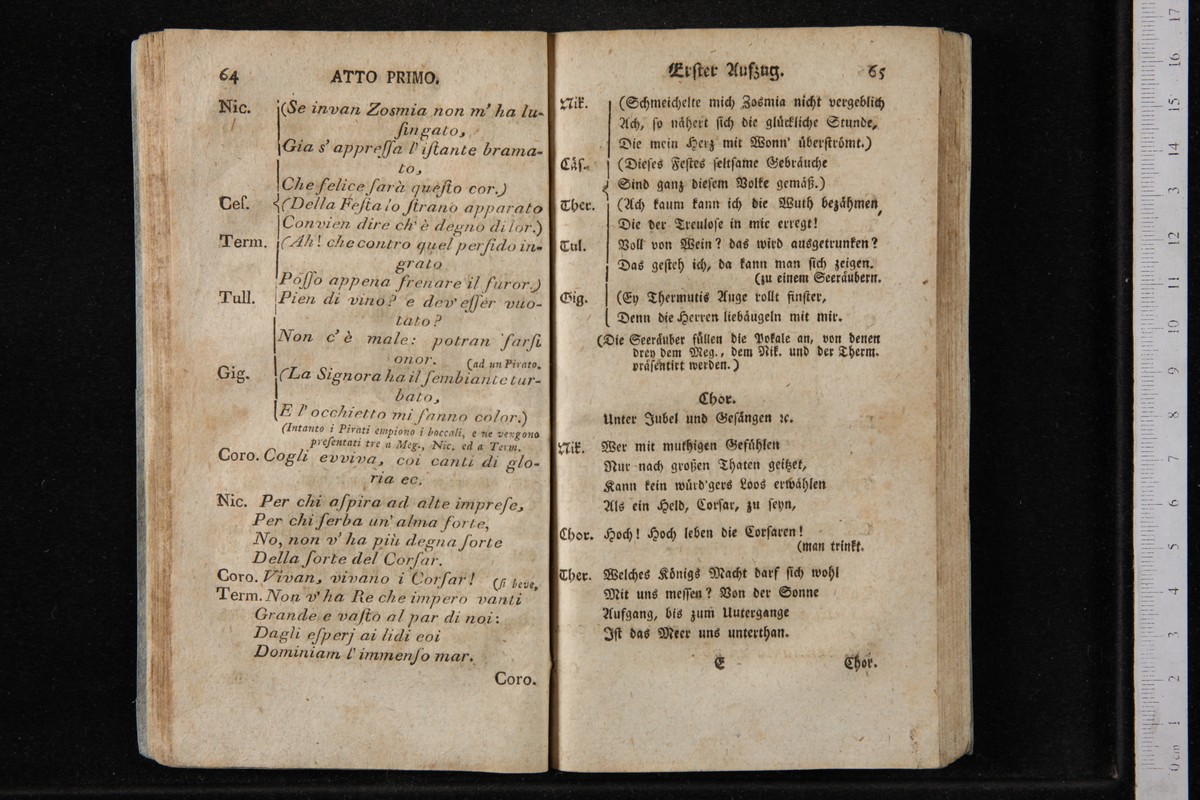 64 ATTO PRIMO.
Nic. (Se invan Zosmia non m' ha lu-
ſingato,
Gia s' appreſſa l' iſtante brama-
to,
Che felice ſarà queſto cor.)
Ceſ. (Della Feſta lo ſtrano apparato
Convien dire ch' è degno di lor.)
Term. (Ah! che contro quel perfido in-
grato
Poſſo appena frenare il furor.)
Tull. Pien di vino? e dev' eſſer vuo-
tato?
Non c' è male: potran farſi
onor. (ad un Pirato.
Gig. (La Signora ha il ſembiante tur-
bato,
E l' occhietto mi fanno color.)
(Intanto i Pirati empiono i boccali, e ne vengono
preſentati tre a Meg., Nic. ed a Term.
Coro. Cogli evviva, coi canti di glo-
ria ec.
Nic. Per chi aſpira ad alte impreſe,
Per chi ſerba un' alma forte,
No, non v' ha più degna ſorte
Della ſorte del Corſar.
Coro. Vivan, vivano i Corſar! (ſi beve,
Term. Non v' ha Re che impero vanti
Grande e vaſto al par di noi:
Dagli eſperj ai lidi eoi
Dominiam l' immenſo mar.
Coro.
Erſter Aufzug. 65
Nik. (Schmeichelte mich Zosmia nicht vergeblich
Ach, ſo nähert ſich die glückliche Stunde,
Die mein Herz mit Wonn' überſtrömt.)
Cäſ. (Dieſes Feſtes ſeltſame Gebräuche
Sind ganz dieſem Volke gemäß.)
Ther. (Ach kaum kann ich die Wuth bezähmen,
Die der Treuloſe in mir erregt!
Tul. Voll von Wein? das wird ausgetrunken?
Das geſteh ich, da kann man ſich zeigen.
(zu einem Seeräubern.
Gig. (Ey Thermutis Auge rollt finſter,
Denn die Herren liebäugeln mit mir.
(Die Seeräuber füllen die Pokale an, von denen
drey dem Meg., dem Nik. und der Therm.
präſentirt werden.)
Chor.
Unter Jubel und Geſängen ꝛc.
Nik. Wer mit muthigen Gefühlen
Nur nach großen Thaten geitzet,
Kann kein würd'gers Loos erwählen
Als ein Held, Corſar, zu ſeyn,
Chor. Hoch! Hoch leben die Corſaren!
(man trinkt.
Ther. Welches Königs Macht darf ſich wohl
Mit uns meſſen? Von der Sonne
Aufgang, bis zum Uutergange
Iſt das Meer uns unterthan.
E Chor.
17
16
15
14
13
12
11
10
9
8
7
6
5
4
3
2
1
0 cm